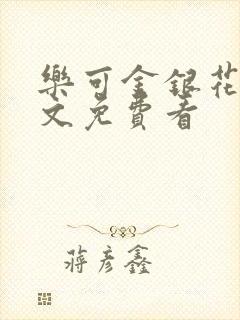 樂可金銀花
文免費看
蔣彥鑫